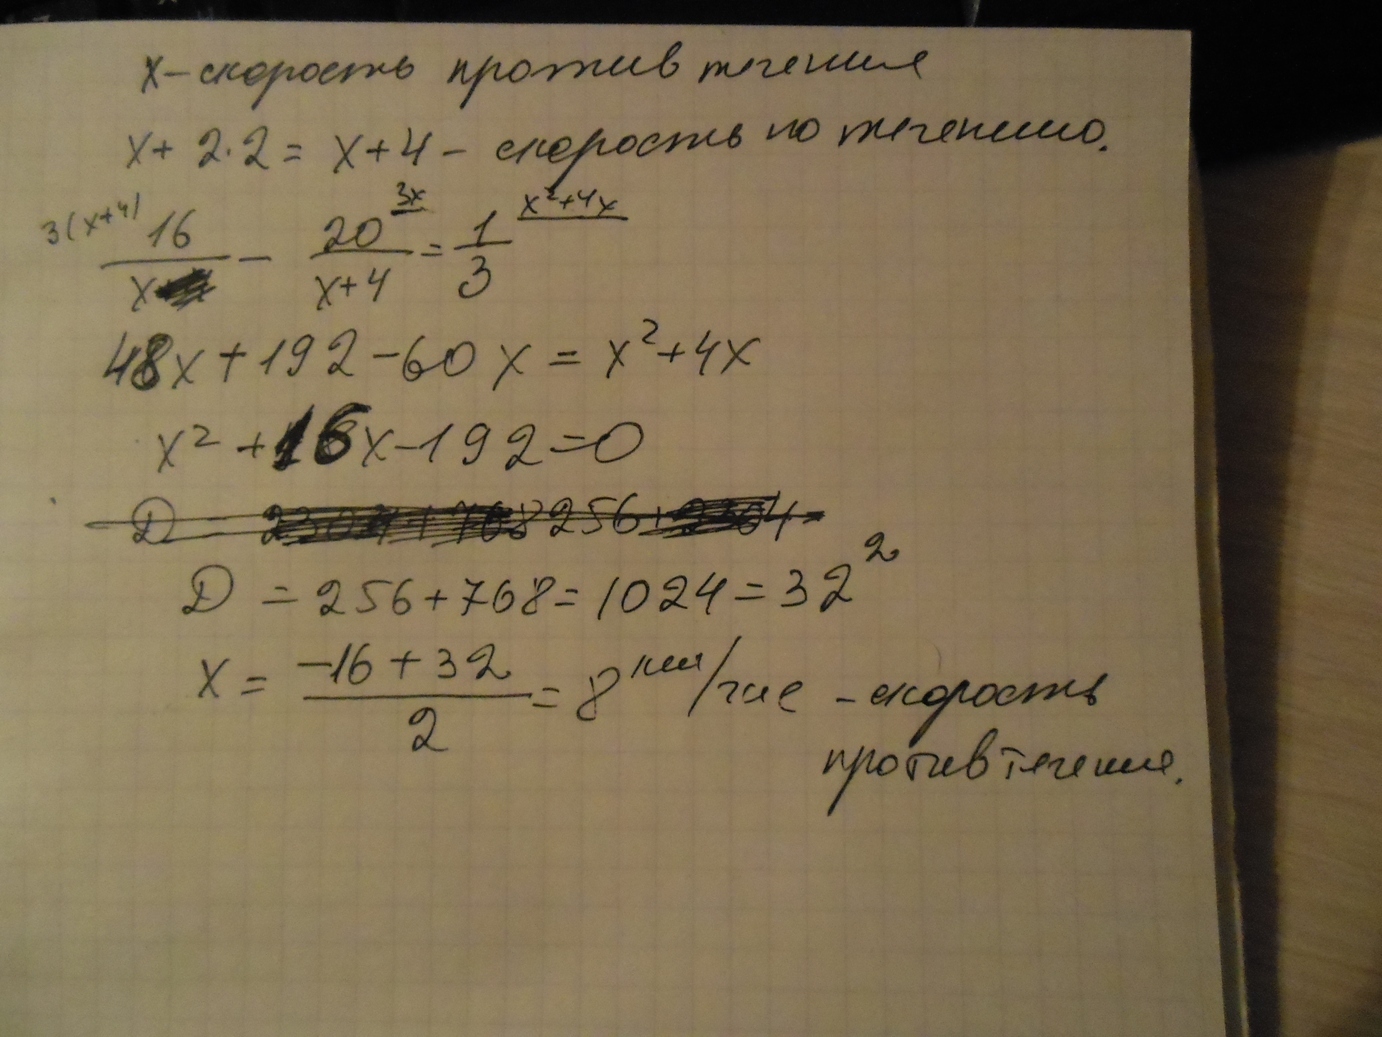 x – скорость против течения
x + 2·2 = x+4 – скорость по течению.
3(x+4) 16/x − 20/(x+4) 3x = 1/3 x²+4x
48x+192−60x = x²+4x
x² +16x−192=0
D = 256+768=1024=32²
x = (−16+32)/2 = 8 км/час – скорость
против течения.